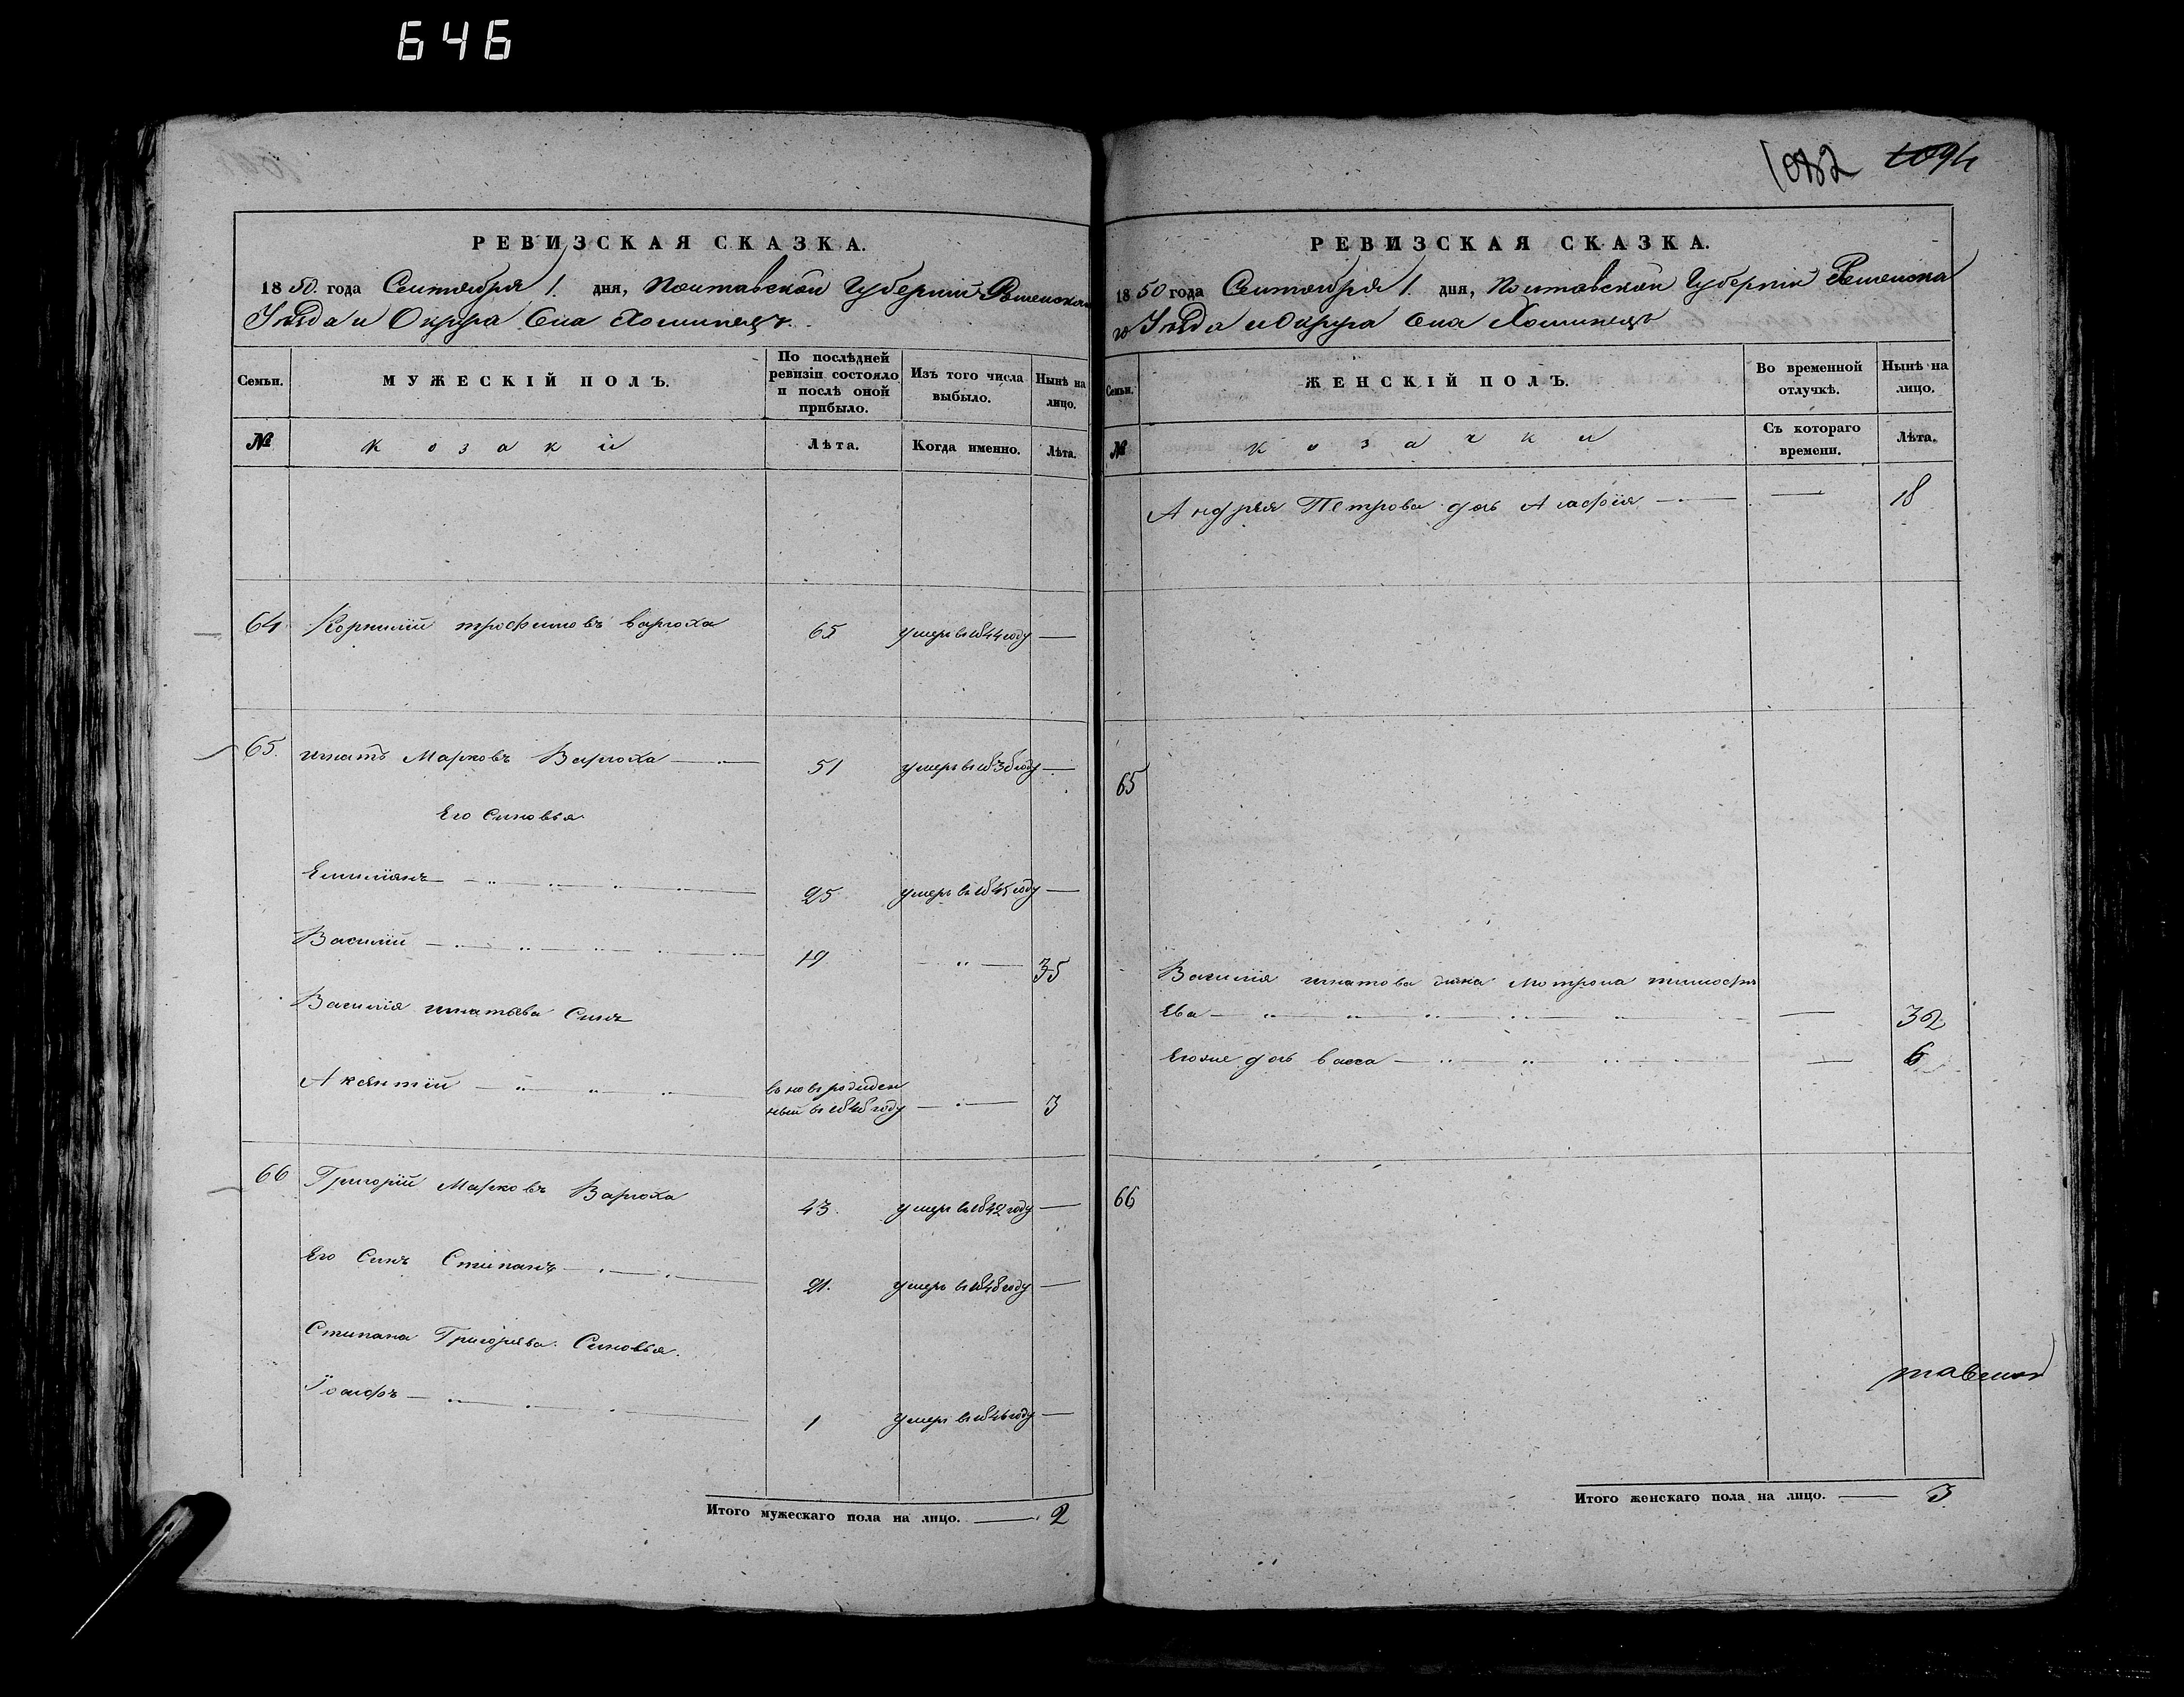 646
РЕВИЗСКАЯ СКАЗКА.
1850. года Сентября 1. дня, Полтавской Губерніи Роменского
Уѣзда и Округа Села
Семьи.
МУЖЕСКІЙ ПОЛЪ.
По послѣдней ревизіи состояло и послѣ оной прибыло.
Изъ того числа выбыло.
Нынѣ на лицо.
№
козаки
Лѣта.
Когда именно.
Лѣта.
64 Корнилій трофимовъ Варюха 65 умеръ въ 1844 году —
65. игнатъ Марковъ Варюха — 51 умеръ въ 183 году —
Его Синовья
Емилиянъ — 25 умеръ в 1845 году —
Василій — 19 — 35
Василія игнатьва Синъ
Аксентій — въновь рожден
ный в 1848 году — 3
66 Григорій Марковъ Варюха 43. умеръ въ 1842 году —
Его Синъ Стипанъ — 21. умеръ в 1848 году —
Стипана Григорьва Синовья.
Іосифъ — 1 умеръ в 1846 году —
Итого мужескаго пола на лицо. — 2
1082 1094
РЕВИЗСКАЯ СКАЗКА.
1850 года Сентября 1. дня, Полтавской Губерніи Роменска
го Уѣзда и Округа Села
Семьи.
ЖЕНСКІЙ ПОЛЪ.
Во временной отлучкѣ.
Нынѣ на лицо.
№
козачки
Съ котораго времени.
Лѣта.
Андрея Петрова дочь Агафія — — 18
65
Василія игнатова жена Мотрона тимофѣ
Ева — — 32
Егоже дочь васса — — 6
66
Итого женскаго пола на лицо. — 3